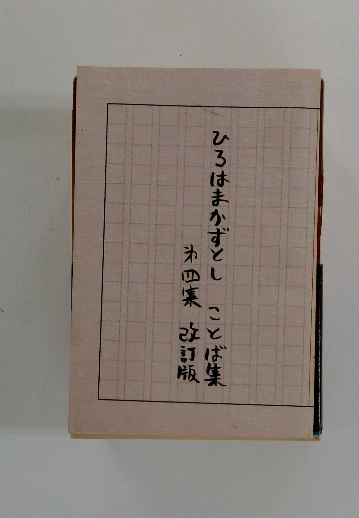 ひろはまかずとし ことば集
㐧四集 改訂版